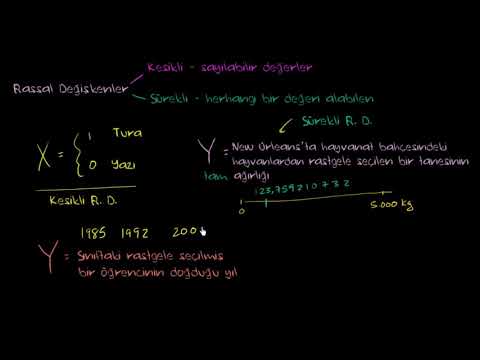 Kesikli - sayılabilir değerler
Rassal Değişkenler
Sürekli - herhangi bir değeri alabilen
Sürekli R. D.
X = { 1 Tura
0 Yazı
Kesikli R. D.
Y = New Orleans'ta hayvanat bahçesindeki
hayvanlardan rastgele seçilen bir tanesinin
tam ağırlığı
123,759210732
0 5.000 kg
1985 1992 200
Y = Sınıftaki rastgele seçilmiş
bir öğrencinin doğduğu yıl